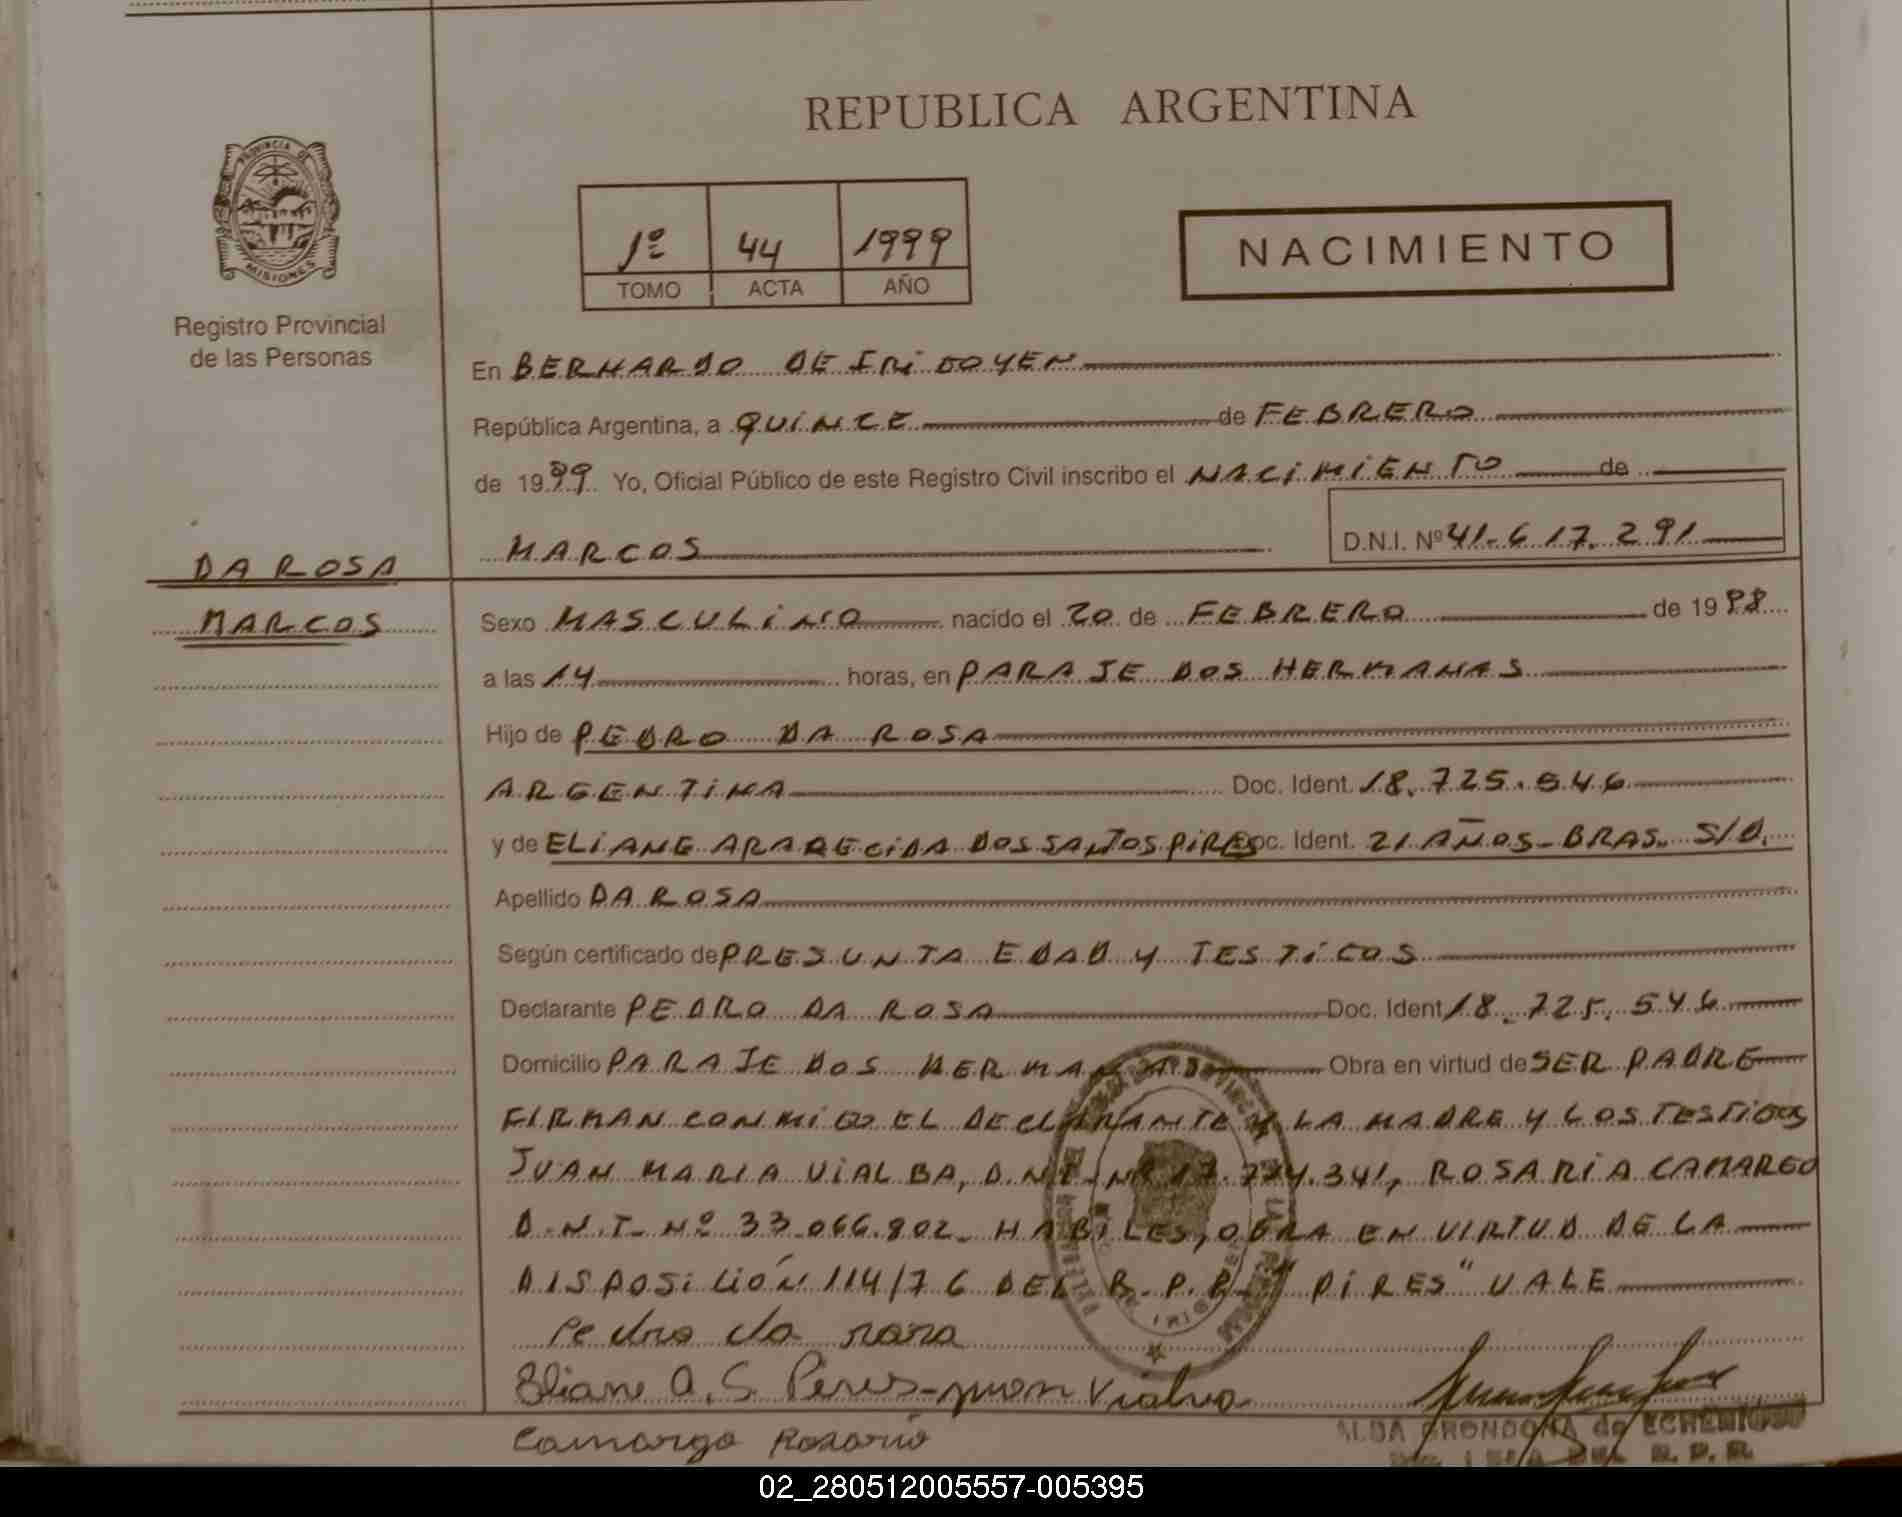 REPUBLICA ARGENTINA
PROVINCIA DE
MISIONES
Registro Provincial
de las Personas
1º 44 1999
TOMO ACTA AÑO
NACIMIENTO
En BERNARDO DE IRIGOYEN
República Argentina, a QUINCE de FEBRERO
de 1999 Yo, Oficial Público de este Registro Civil inscribo el NACIMIENTO de
MARCOS D.N.I. Nº 41-617.291
DA ROSA
MARCOS
Sexo MASCULINO nacido el 20 de FEBRERO de 1998
a las 14 horas, en PARAJE DOS HERMANAS
Hijo de PEDRO DA ROSA
ARGENTINA Doc. Ident. 18.725.546
y de ELIANE APARECIDA DOS SANTOS PIRES Doc. Ident. 21 AÑOS-BRAS. S/D.
Apellido DA ROSA
Según certificado de PRESUNTA EDAD Y TESTIGOS
Declarante PEDRO DA ROSA Doc. Ident 18.725.546
Domicilio PARAJE DOS HERMANAS Obra en virtud de SER PADRE
FIRMAN CONMIGO EL DECLARANTE Y LA MADRE Y LOS TESTIGOS
JUAN MARIA VIALBA, D.N.I-Nº 17.774.341, ROSARIA CAMARGO
D.N.I-Nº 33.066.802- HABILES, OBRA EN VIRTUD DE LA
DISPOSICIÓN 114/76 DEL R.P.P-"PIRES" VALE
Pedro da rosa
Eliane A. S. Peres-juan Vialva
Camargo Rosario
ALBA GRONDONA de ECHENIQUE
R. P. R.
02_280512005557-005395